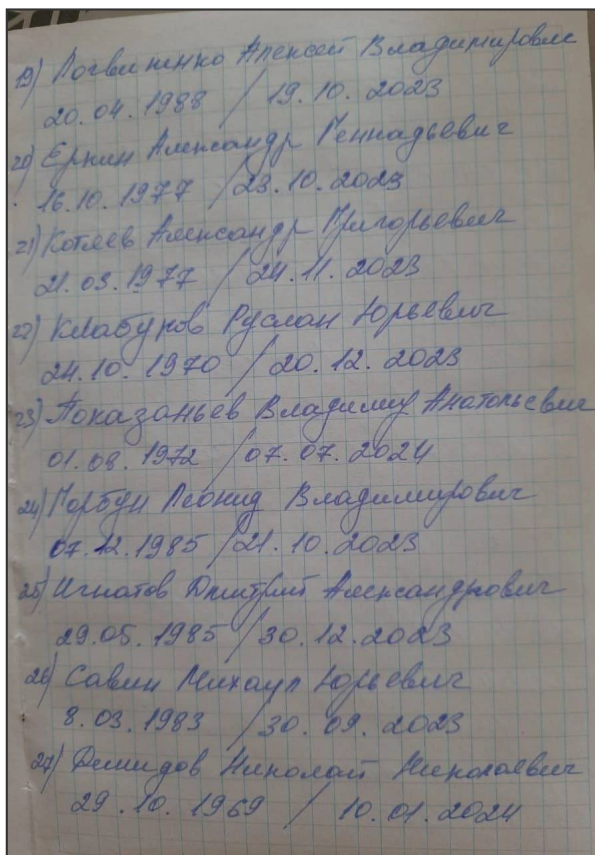 19) Логвиненко Алексей Владимирович
20.04.1988 / 19.10.2023
20) Еркин Александр Геннадьевич
16.10.1977 / 23.10.2023
21) Котяев Александр Григорьевич
21.03.1977 / 24.11.2023
22) Клабуков Руслан Юрьевич
24.10.1970 / 20.12.2023
23) Показаньев Владимир Анатольевич
01.08.1972 / 07.07.2024
24) Горбун Леонид Владимирович
07.12.1985 / 21.10.2023
25) Игнатов Дмитрий Александрович
29.05.1985 / 30.12.2023
26) Савин Михаил Юрьевич
8.03.1983 / 30.09.2023
27) Демидов Николай Николаевич
29.10.1969 / 10.01.2024